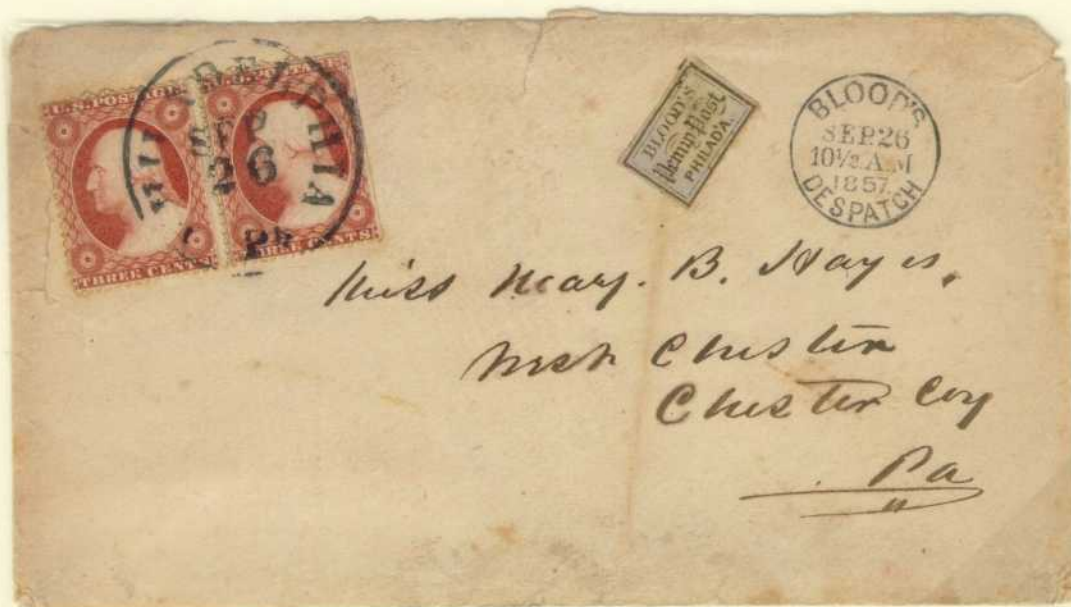 U.S. POSTAGE
THREE CENTS
PHILADELPHIA
SEP
26
THREE CENTS
BLOOD'S
Penny Post
PHILAD'A.
BLOOD'S
SEP.26
10½ A.M
1857.
DESPATCH
Miss Mary. B. Hayes,
West Chester
Chester Coy
Pa